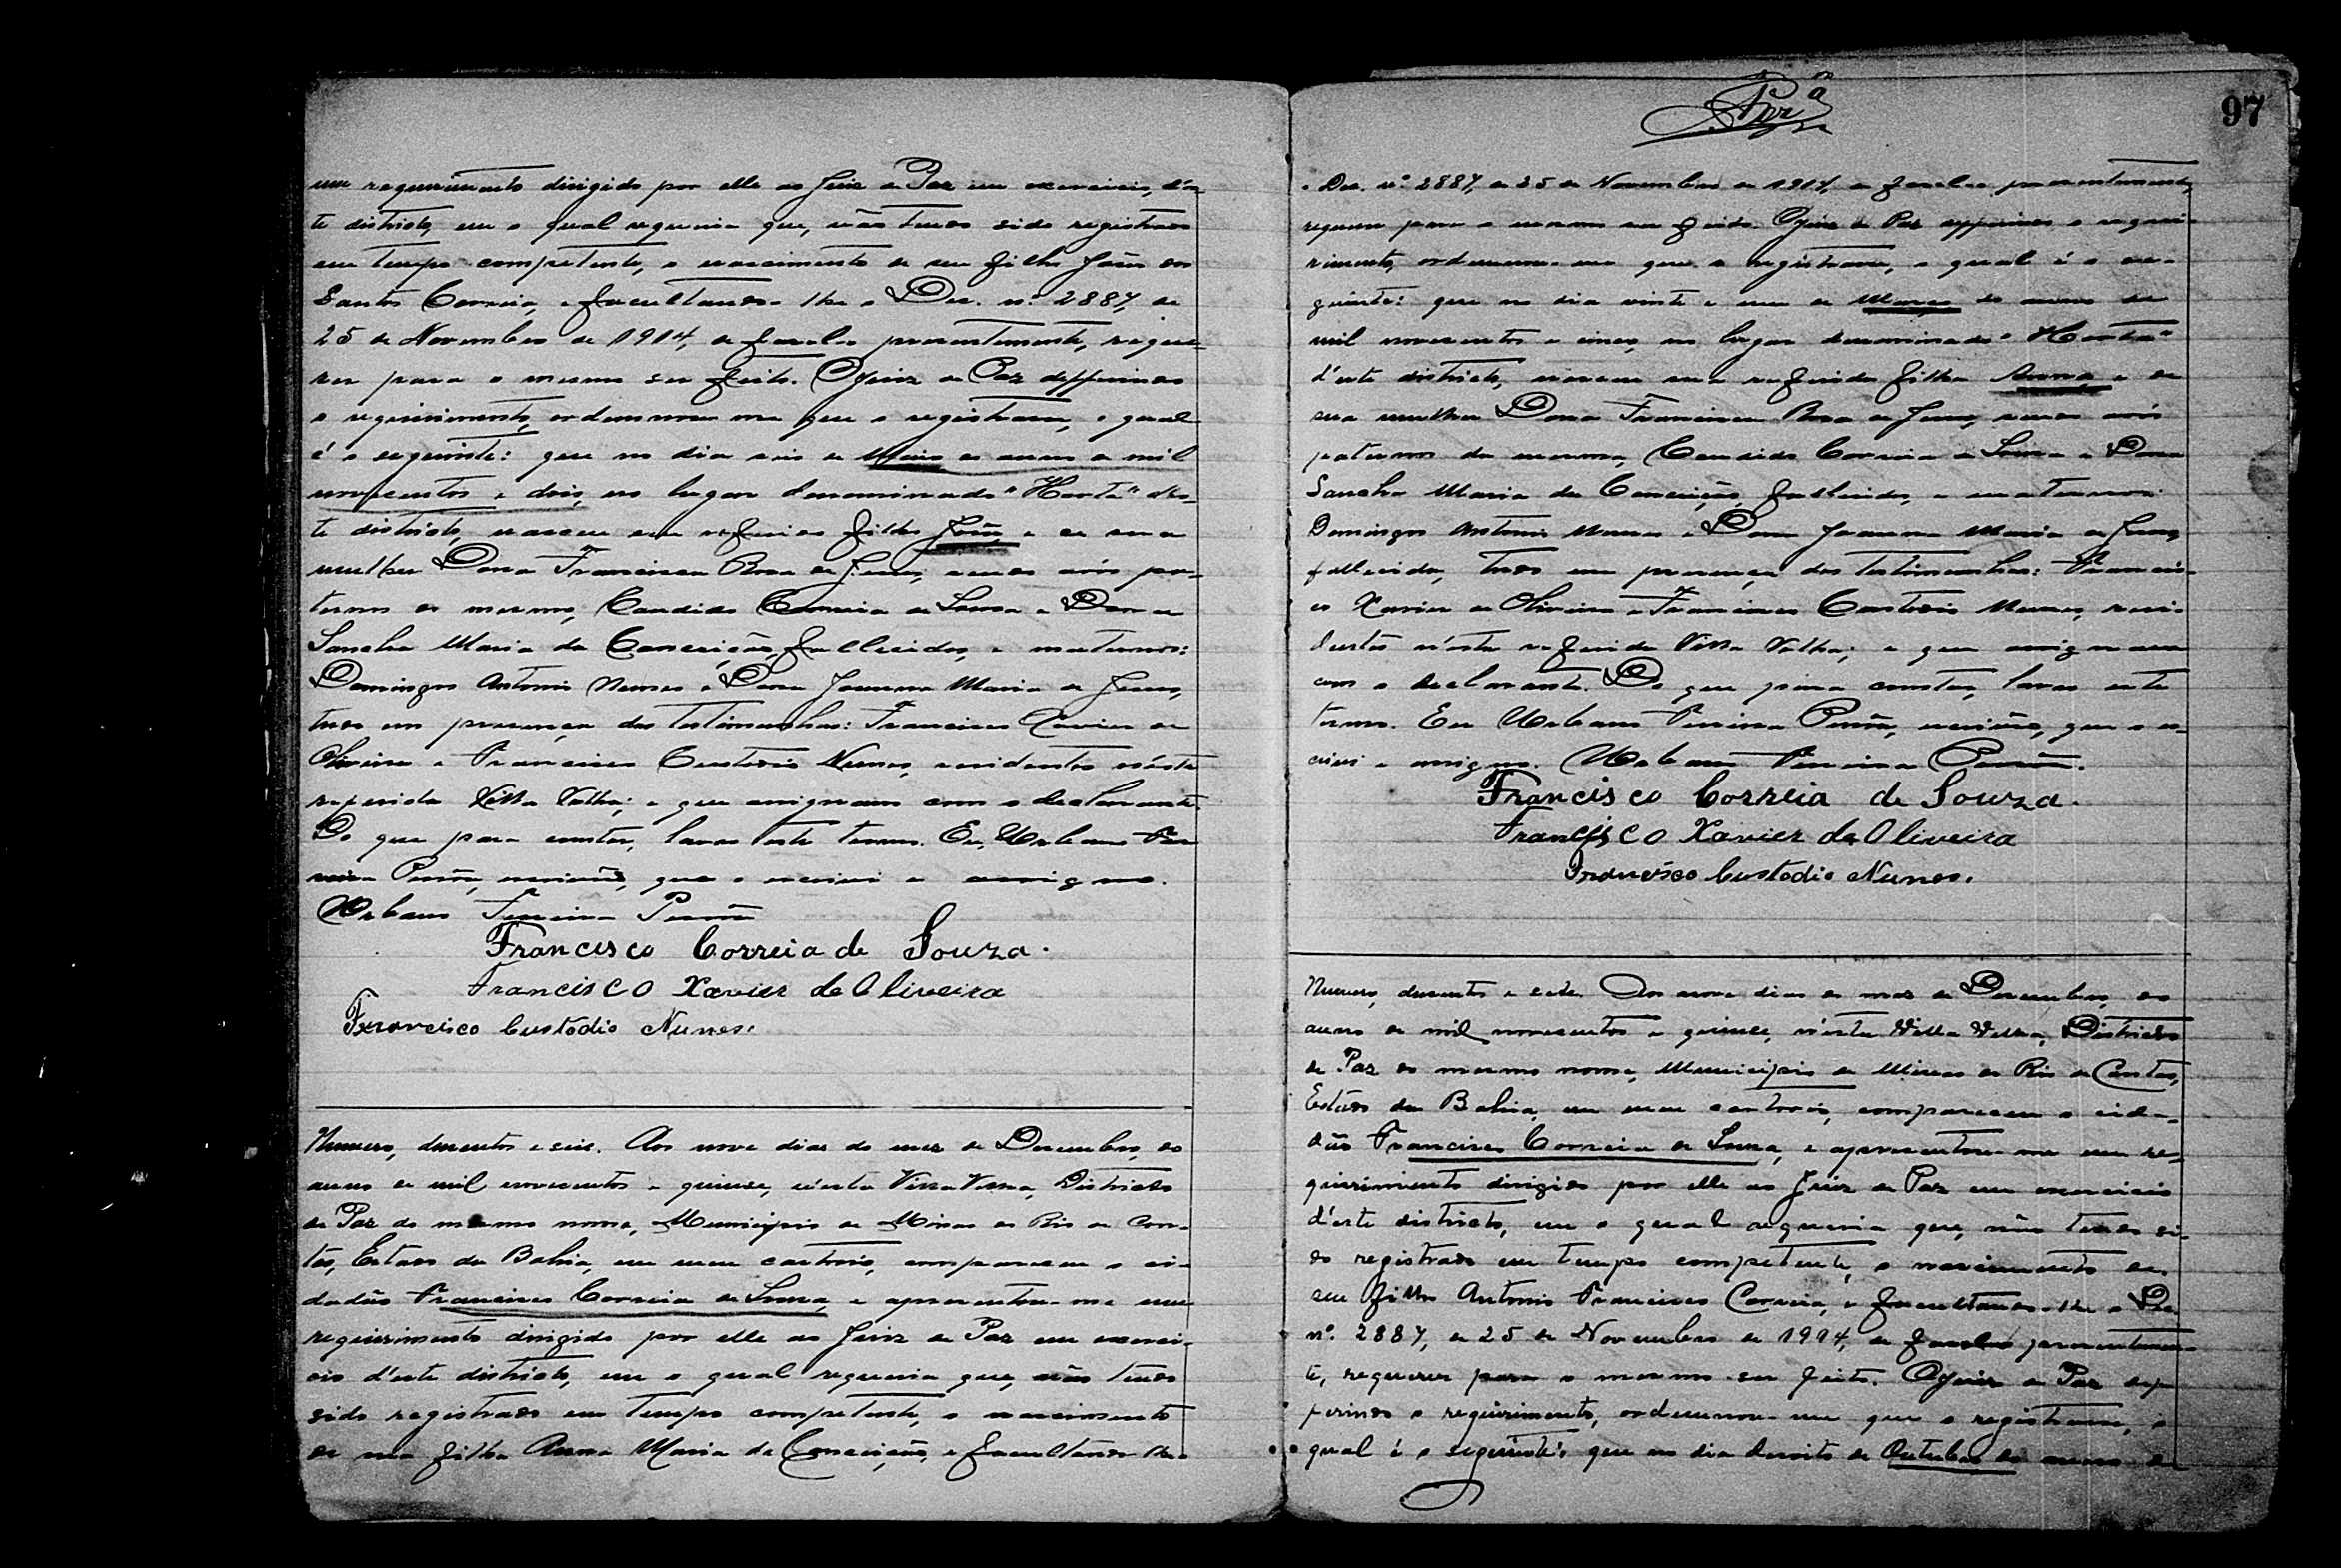 um requerimento dirigido por elle ao Juiz de Paz em exercicio, d'es-
te districto, em o qual requeria que, não tendo sido registrado
em tempo competente, o nascimento de seu filho João dos
Santos Correia, e facultando-lhe o Dec. nº 2887, de
25 de Novembro de 1914, de fazel-o presentemente, reque-
rer para o mesmo ser feito. O Juiz de Paz defferindo
o requirimento, ordennou-me que o registrasse, o qual
é o seguinte: que no dia seis de Maio do anno de mil
novecentos e dois, no lugar denominado "Horta" d'es-
te districto, nasceu seu referido filho João, e de sua
mulher Dona Francisca Rosa de Jesus, sendo avós pa-
ternos do mesmo, Candido Correia de Souza e Dona
Sancha Maria da Conceição, fallecidos, e maternos:
Domingos Antonio Nunes e Dona Joanna Maria de Jesus,
tudo em presença das testimunhas: Francisco Xavier de
Oliveira e Francisco Custodio Nunes, residentes n'ésta
referida Villa Velha; e que assignam com o declarante.
Do que para constar, lavro este termo. Eu, Urbano Fer
reira Pessôa, escrivão, que o escrivi e assigno.
Urbano Ferreira Pessôa
Francisco Correia de Souza.
Francisco Xavier de Oliveira
Francisco Custodio Nunes.
Numero, duzentos e seis. Aos nove dias do mez de Dezembro, do
anno de mil novecentos e quinze, n'ésta Villa Velha, Districto
de Paz do mesmo nome, Municipio de Minas do Rio de Con-
tas, Estado da Bahia, em meu cartorio, compareceu o ci-
dadão Francisco Correia de Souza, e apresentou-me um
requirimento dirigido por elle ao Juiz de Paz em exerci-
cio d'este districto, em o qual requeria que, não tendo
sido registrado em tempo competente, o nascimento
de sua filha Anna Maria da Conceição, e facultando-lhe
97
o Dec. nº 2887, de 25 de Novembro de 1914, de fazel-o presentemente,
requerer para o mesmo ser feito. O Juiz de Paz defferindo o requi-
rimento, ordennou-me que o registrasse, o qual é o se-
guinte: que no dia vinte e um de Março do anno de
mil novecentos e cinco, no lugar denominado "Horta"
d'este districto, nasceu sua referida filha Anna, e de
sua mulher Dona Francisca Rosa de Jesus, sendo avós
paternos da mesma, Candido Correia de Souza e Dona
Sancha Maria da Conceição, fallecidos, e maternos:
Domingos Antonio Nunes e Dona Joanna Maria de Jesus,
fallecida, tudo em presença das testimunhas: Francis-
co Xavier de Oliveira e Francisco Custodio Nunes, resi-
dentes n'ésta referida Villa Velha; e que assignam
com o declarante. Do que para constar, lavro este
termo. Eu Urbano Ferreira Pessôa, escrivão, que o es-
crivi e assigno. Urbano Ferreira Pessôa.
Francisco Correia de Souza.
Francisco Xavier de Oliveira
Francisco Custodio Nunes.
Numero, duzentos e sete. Aos nove dias do mez de Dezembro, do
anno de mil novecentos e quinze, n'ésta Villa Velha, Districto
de Paz do mesmo nome, Municipio de Minas do Rio de Contas,
Estado da Bahia, em meu cartorio, compareceu o cida-
dão Francisco Correia de Souza, e apresentou-me um re-
quirimento dirigido por elle ao Juiz de Paz em exercicio
d'este districto, em o qual requeria que, não tendo si-
do registrado em tempo competente, o nascimento de
seu filho Antonio Francisco Correia, e facultando-lhe o Dec.
nº. 2887, de 25 de Novembro de 1914, de fazel-o presentemen-
te, requerer para o mesmo ser feito. O Juiz de Paz def-
ferindo o requirimento, ordennou-me que o registrasse, o
qual é o seguinte: que no dia dezoito de Outubro do anno de